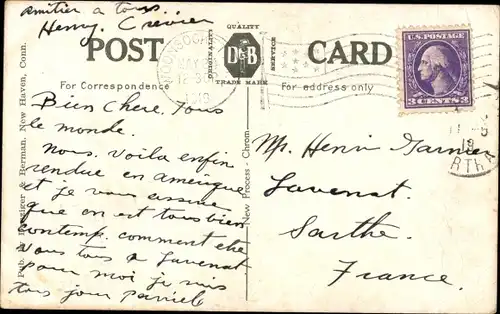 amitier a tous
Henry. Crevier
POST CARD
QUALITY
ORIGINALITY
D&B
SERVICE
TRADE MARK
For Correspondence
For address only
U.S. POSTAGE
3 CENTS 3
Bien Chere. Tous
le monde.
Nous. Voila enfin
rendue en amerique
et je vous assure
que on est tous bien
contemp. comment ete
vous tous a Lavenat
pour moi je suis
tous jour pareile
Mr. Henri Garnier
Lavenat.
Sarthe.
France.
New Process - Chrom
Pub. by Danziger & Berman, New Haven, Conn.